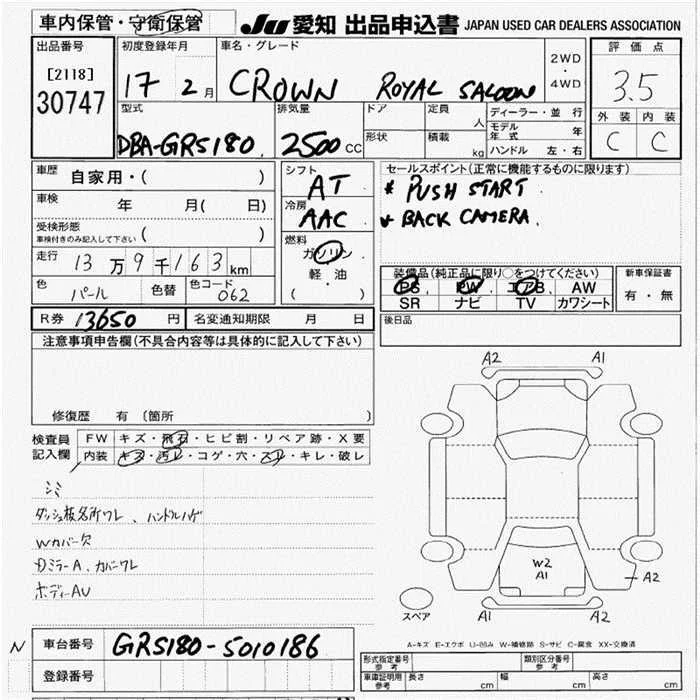 車内保管・守衛保管
JU 愛知 出品申込書 JAPAN USED CAR DEALERS ASSOCIATION
出品番号
[2118]
30747
初度登録年月
17 2月
車名・グレード
CROWN ROYAL SALOON
2WD
・
4WD
評価点
3.5
外装 内装
C C
型式
DBA-GRS180
排気量
2500CC
ドア
定員
人
形状
積載
kg
ディーラー・並行
モデル年式 年
ハンドル 左・右
車歴
自家用・( )
車検
年 月( 日)
受検形態
車検付きのみ記入して下さい ( )
走行
13万9千163km
色
パール
色替
色コード
062
シフト
AT
冷房
AAC
燃料
ガソリン
軽・油
( )
セールスポイント(正常に機能するものに限ります)
* PUSH START.
* BACK CAMERA.
装備品(純正品に限り○をつけてください)
PS PW エアB AW
SR ナビ TV カワシート
新車保証書
有・無
R券 13650円
名変通知期限 月 日
後日品
注意事項申告欄(不具合内容等は具体的に記入して下さい)
修復歴 有 〔箇所 〕
検査員
記入欄
FW キズ・飛石・ヒビ割・リペア跡・X要
内装 キズ・汚レ・コゲ・穴・スレ・キレ・破レ
シミ
ダッシュ板名所ワレ、ハンドルハゲ
Wカバー欠
DミラーA、カバーワレ
ボディーAU
A2 A1
W2
A1
A2
A1 A2
スペア
A-キズ E-エクボ U-凹み W-補修跡 S-サビ C-腐食 XX-交換済
N
車台番号
GRS180-5010186
登録番号
形式指定番号
参考
類別区分番号
参考
車庫証明用
参考
長さ cm
幅 cm
高さ cm